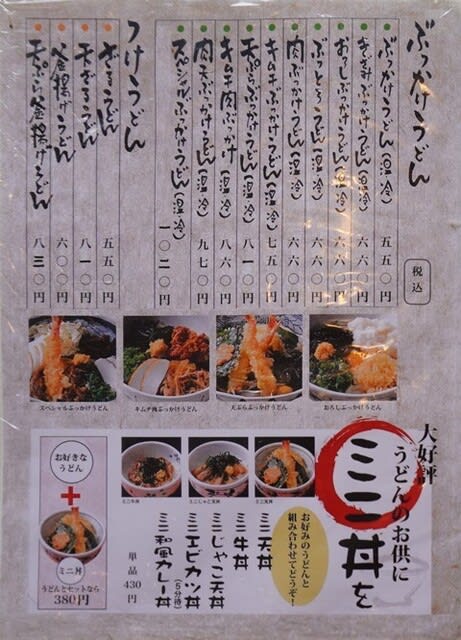 ぶっかけうどん
税込
ぶっかけうどん(温 冷) 五五〇円
きざみぶっかけうどん(温 冷) 六六〇円
おろしぶっかけうどん(温 冷) 六六〇円
ぶっとろうどん(温 冷) 六六〇円
肉ぶっかけうどん(温 冷) 六六〇円
キムチぶっかけうどん(温 冷) 七五〇円
天ぷらぶっかけうどん(温 冷) 八一〇円
キムチ肉ぶっかけ(温 冷) 八六〇円
肉天ぶっかけうどん(温 冷) 九七〇円
スペシャルぶっかけうどん(温 冷) 一〇二〇円
つけうどん
ざるうどん 五五〇円
天ざるうどん 八一〇円
釜揚げうどん 六〇〇円
天ぷら釜揚げうどん 八三〇円
スペシャルぶっかけうどん
キムチ肉ぶっかけうどん
天ぷらぶっかけうどん
おろしぶっかけうどん
大好評
うどんのお供に
ミニ丼を
お好みのうどんと
組み合わせてどうぞ!
ミニ牛丼
ミニじゃこ天丼
ミニ天丼
ミニ天丼
ミニ牛丼
ミニじゃこ天丼
ミニエビカツ丼(5分待)
ミニ和風カレー丼
単品430円
お好きな
うどん
+
ミニ丼
うどんとセットなら
380円